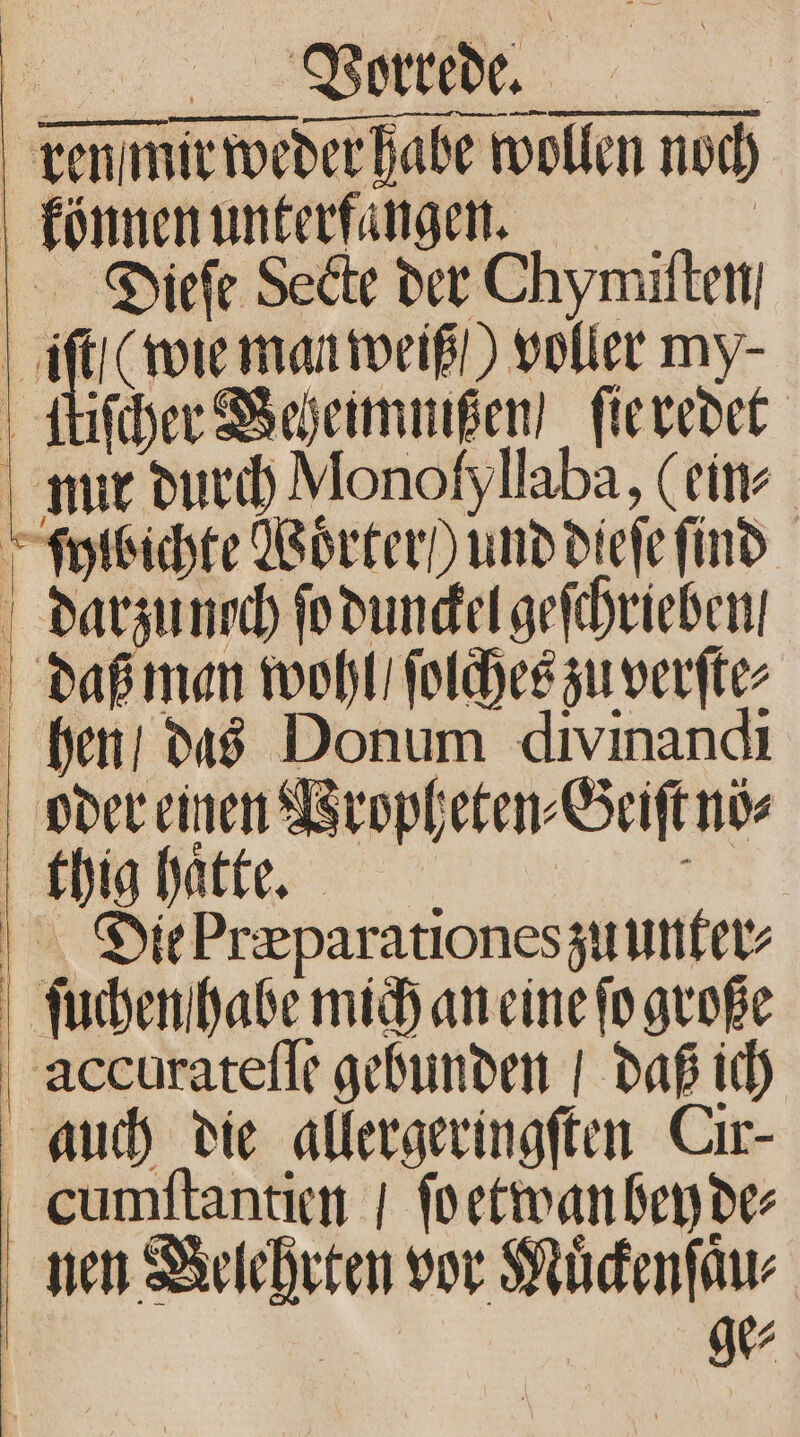 Vorrede.
ren/mir weder habe wollen noch
können unterfangen.
Dieſe Secte der Chymiſten/
iſt/(wie man weiß/) voller my-
ſtiſcher Geheimnißen/ ſie redet
nur durch Monoſyllaba, (ein⸗
ſylbichte Woͤrter/) und dieſe ſind
darzu noch ſo dunckel geſchrieben/
daß man wohl/ ſolches zu verſte⸗
hen/ das Donum divinandi
oder einen Propheten⸗Geiſt noͤ⸗
thig haͤtte.
Die Præparationes zu unter⸗
ſuchen/habe mich an eine ſo große
accurateſſe gebunden / daß ich
auch die allergeringſten Cir-
cumſtantien / ſo etwan bey de⸗
nen Gelehrten vor Muͤckenſaͤu⸗
ge⸗